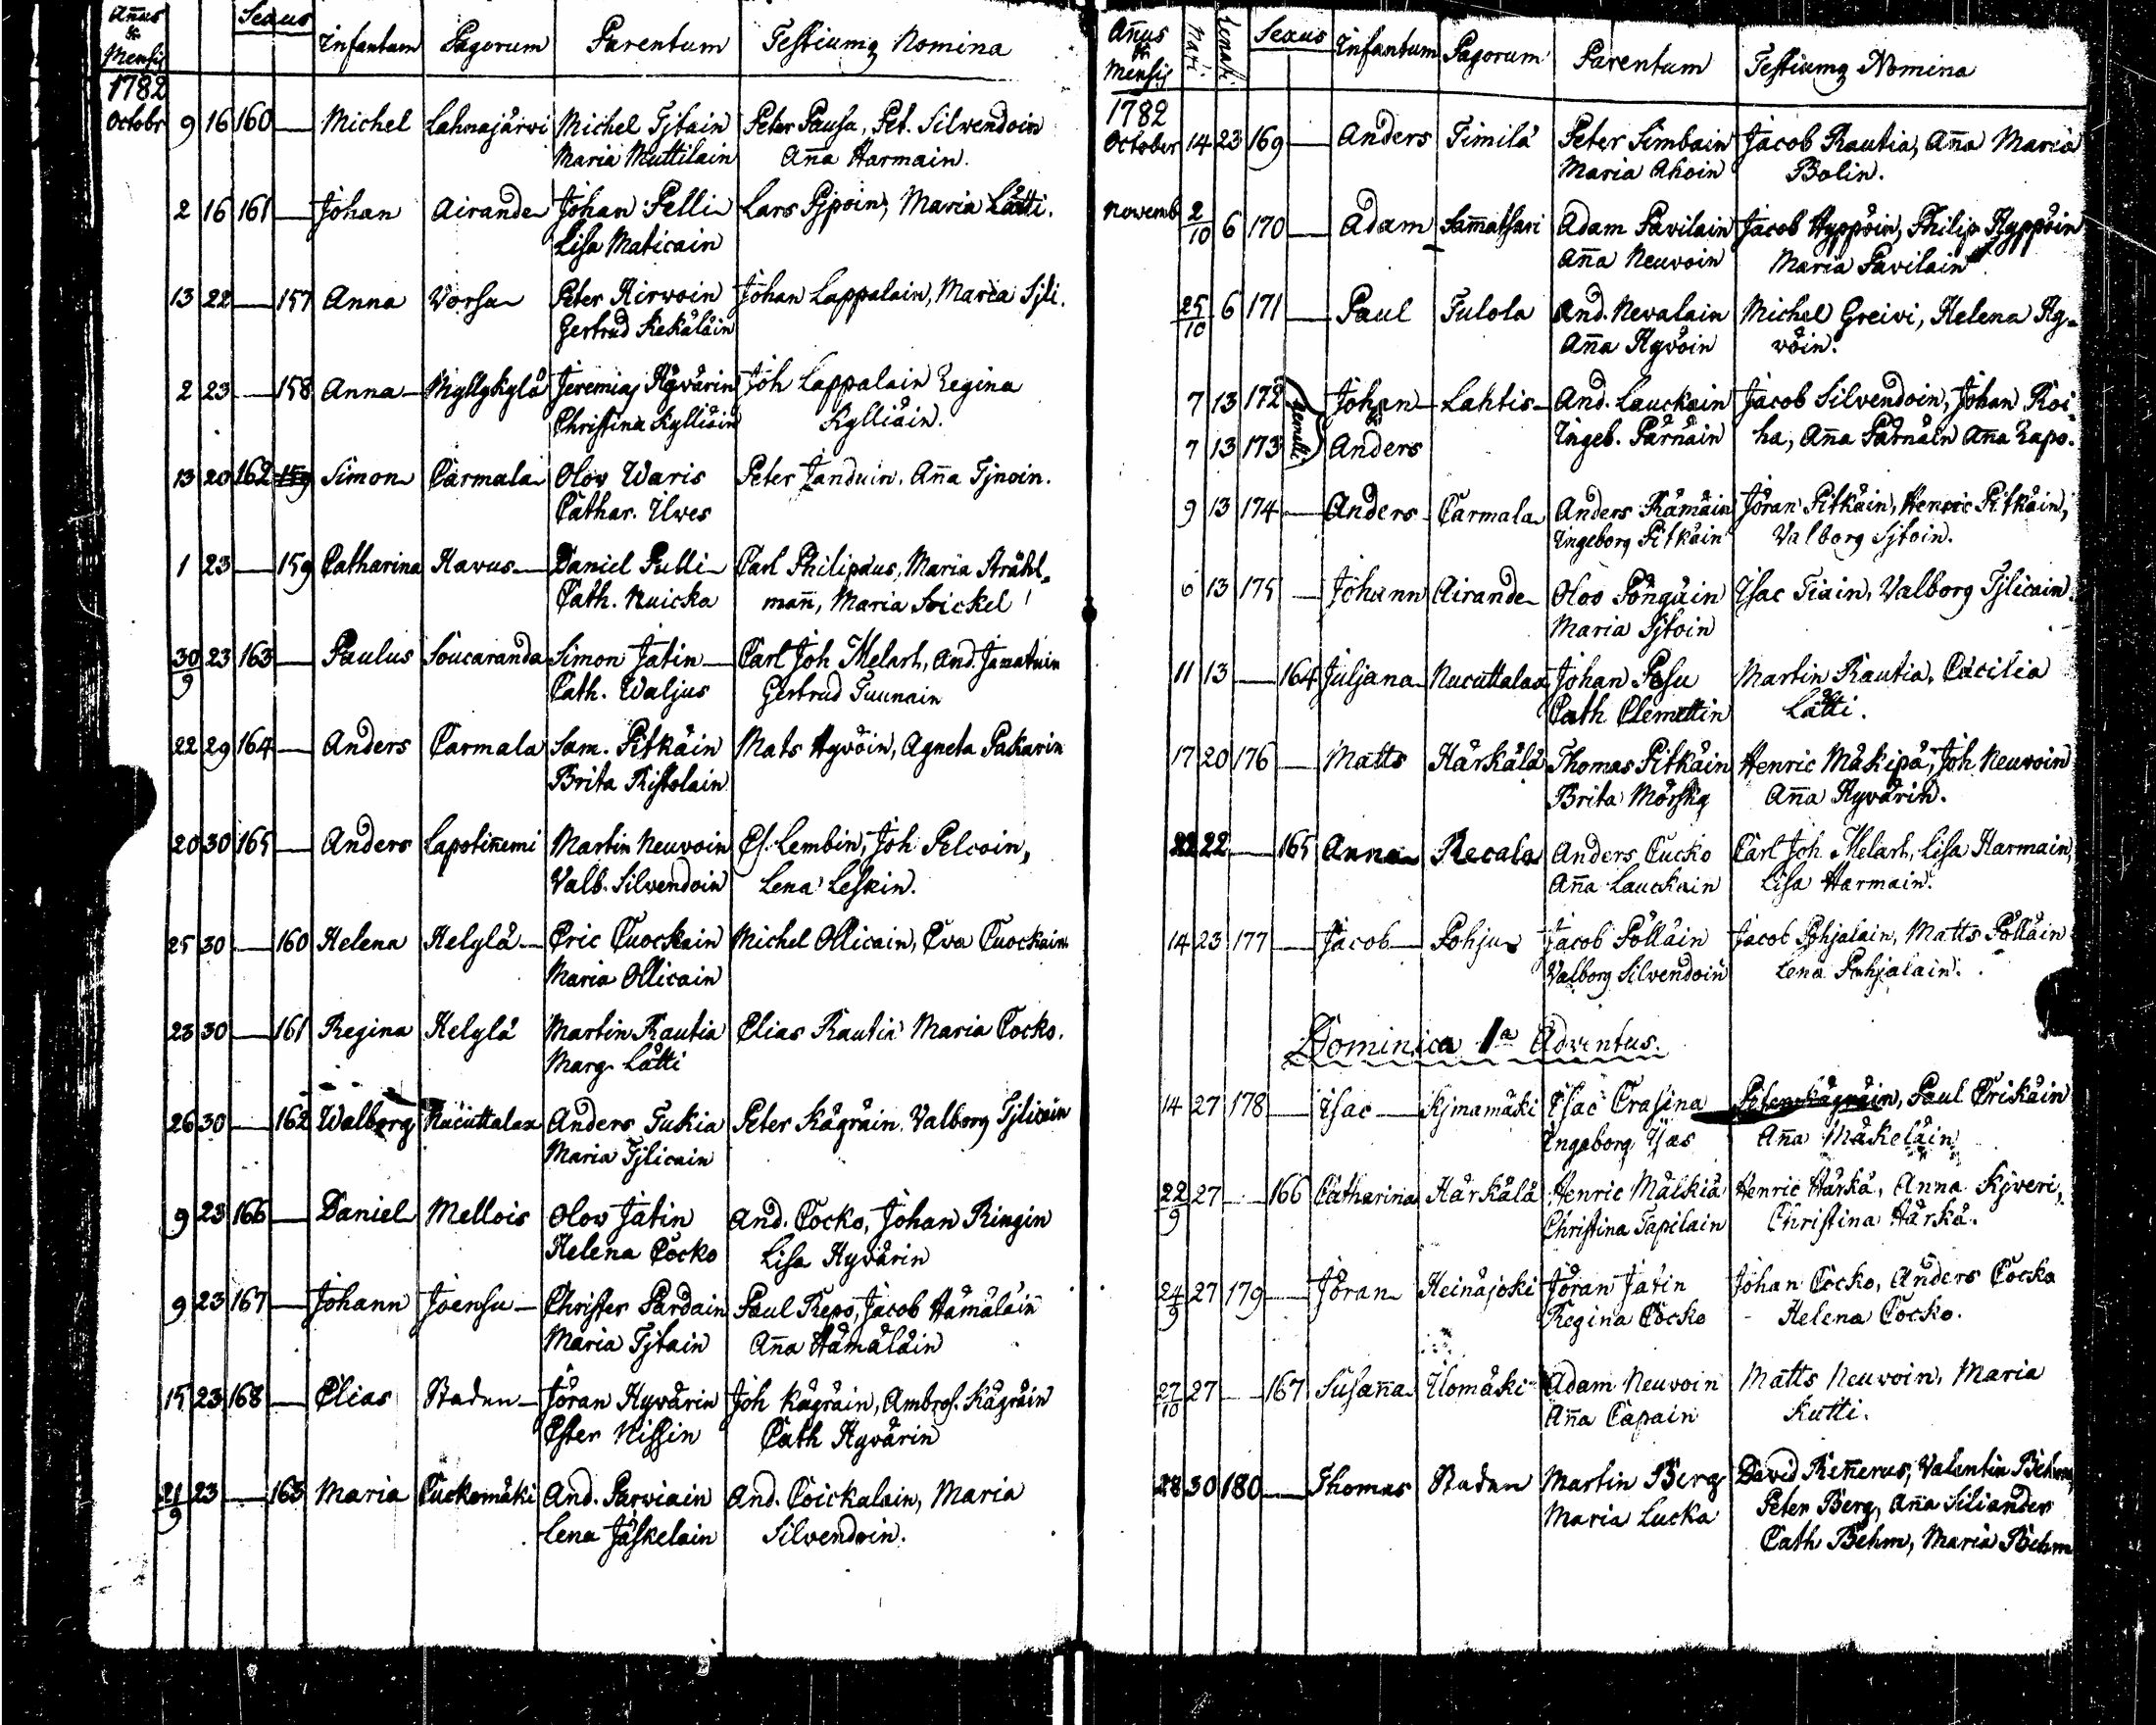 Añus & Mensis Sexus Infantum Pagorum Parentum Testiumq Nomina
1782
Octobr 9 16 160 — Michel Lahnajärvi Michel Tjtain Peter Pausu, Pet. Silvendoin
Maria Muttilain Aña Harmain.
2 16 161 — Johan Airanda Johan Pelli Lars Pjpoin, Maria Lätti.
Lisa Maticain
13 22 — 157 Anna Vorsu Peter Hirvoin Johan Lappalain, Maria Sjli.
Gertrud Kekäläin
2 23 — 158 Anna Myllykylä Jeremias Hyvärin Joh Lappalain Regina
Christina Kylliäin Kylliäin.
13 20 162 159 Simon Carmala Olov Waris Peter Janduin. Aña Tjnoin.
Cathar. Ilves
1 23 — 159 Catharina Havus Daniel Pulli Carl Philipaus, Maria Stråhl-
Cath. Nuicka mañ, Maria Soickel
30/9 23 163 — Paulus Soucaranda Simon Jatin Carl Joh Melart, And. Jamatuin
Cath. Waljus Gertrud Tuunain
22 29 164 — Anders Carmala Sam. Pitkäin Mats Hyvöin, Agneta Pakarin
Brita Ristolain
20 30 165 — Anders Lapotiñemi Martin Neuvoin Es. Lembin, Joh Pelcoin,
Valb. Silvendoin Lena Leskin.
25 30 — 160 Helena Helylä Eric Cuockain Michel Ollicain, Eva Cuockain
Maria Ollicain
23 30 — 161 Regina Helylä Martin Rautia Elias Rautia Maria Cocko.
Marg. Lätti
26 30 — 162 Walborg Nucuttalax Anders Tukia Peter Kägräin. Valborg Tjlicain
Maria Tjlicain
9 23 166 — Daniel Mellois Olov Jatin And. Cocko, Johan Ringin
Helena Cocko Lisa Hyvärin
9 23 167 — Johann Joensu Christer Pardain Paul Repo, Jacob Hämäläin
Maria Tjtain Aña Hämäläin
15 23 168 — Elias Staden Jöran Hyvärin Joh Kägräin, Ambros. Kägräin
Ester Nissin Cath Hyvärin
21/9 23 — 163 Maria Cuckomäki And. Parviain And. Coickalain, Maria
Lena Jäskelain Silvendoin.
Añus & Mensis Nati Renati Sexus Infantum Pagorum Parentum Testiumq Nomina
1782
October 14 23 169 — Anders Timilä Peter Simbain Jacob Rautia, Aña Maria
Maria Ahoin Bolin.
Novemb 2/10 6 170 — Adam Sam̃atsari Adam Pavilain Jacob Hyppöin, Philip Hyppöin
Aña Neuvoin Maria Pavilain
25/10 6 171 — Paul Tulola And. Nevalain Michel Greivi, Helena Hy-
Aña Hyvöin vöin.
7 13 172 Gemelli Johan Lahtis And. Lauckain Jacob Silvendoin, Johan Roi-
7 13 173 & Anders Ingeb. Pärnäin ha, Aña Pärnäin Aña Rapo.
9 13 174 — Anders Carmala Anders Rämäin Jöran Pitkäin, Henric Pitkäin,
Ingeborg Pitkäin Valborg Sjtoin.
6 13 175 — Johann Airanda Olov Pöngäin Isac Tiain, Valborg Tjlicain.
Maria Sjtoin
11 13 — 164 Juljana Nucuttalax Johan Posu Martin Rautia, Cäcilia
Cath Clemettin Lätti.
17 20 176 — Matts Härkälä Thomas Pitkäin Henric Mäkipä, Joh Neuvoin
Brita Mörsky Aña Hyvärin.
22 22 — 165 Anna Recala Anders Cucko Carl Joh Melart, Lisa Harmain,
Aña Lauckain Lisa Harmain.
14 23 177 — Jacob Pohju Jacob Pölläin Jacob Pohjalain, Matts Pölläin
Valborg Silvendoin Lena Pohjalain.
Dominica 1a Adventus.
14 27 178 — Isac Kjmamäki Isac Erasina Peter Kägräin, Paul Erikäin
Ingeborg Ijäs Aña Mäkeläin
22/9 27 — 166 Catharina Härkälä Henric Mälkiä Henric Härkä, Anna Kjveri,
Christina Tapilain Christina Härkä.
24/9 27 179 — Jöran Heinäjoki Jöran Jatin Johan Cocko, Anders Cocko
Regina Cocko Helena Cocko.
27/10 27 — 167 Susaña Ilomäki Adam Neuvoin Matts Neuvoin, Maria
Aña Capain Kutti.
28 30 180 — Thomas Staden Martin Berg David Reñerus, Valentin Behm,
Maria Lucka Peter Berg, Aña Siliander
Cath Behm, Maria Behm